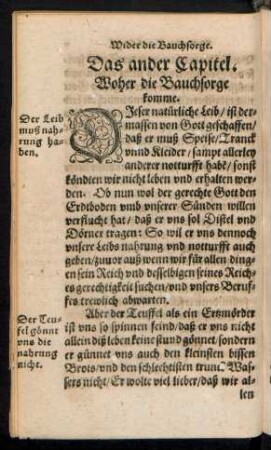 Wider die Bauchsorge.
Das ander Capitel.
Woher die Bauchsorge
komme.
Der Leib
muß nah-
rung ha-
ben.
DIeser natürliche Leib / ist der-
massen von Gott geschaffen /
daß er muß Speise / Tranck
vnnd Kleider / sampt allerley
anderer notturfft habē / sonst
köndten wir nicht leben vnd erhalten wer-
den. Ob nun wol der gerechte Gott den
Erdtboden vmb vnserer Sünden willen
verflucht hat / daß er vns sol Distel vnd
Dörner tragen: So wil er vns dennoch
vnsere Leibs nahrung vnd notturfft auch
geben / zuuor auß wenn wir für allen din-
gen sein Reich vnd desselbigen seines Reich-
es gerechtigkeit suchen / vnd vnsers Beruf-
fes trewlich abwarten.
Der Teu-
fel gönnt
vns die
nahrung
nicht.
Aber der Teuffel als ein Ertzmörder
ist vns so spinnen feind / daß er vns nicht
allein diß leben keine stund gönnet / sondern
er günnet vns auch den kleinsten bissen
Brots / vnd den schlechtisten trunc Was-
sers nicht / Er wolte viel lieber / daß wir al-
len